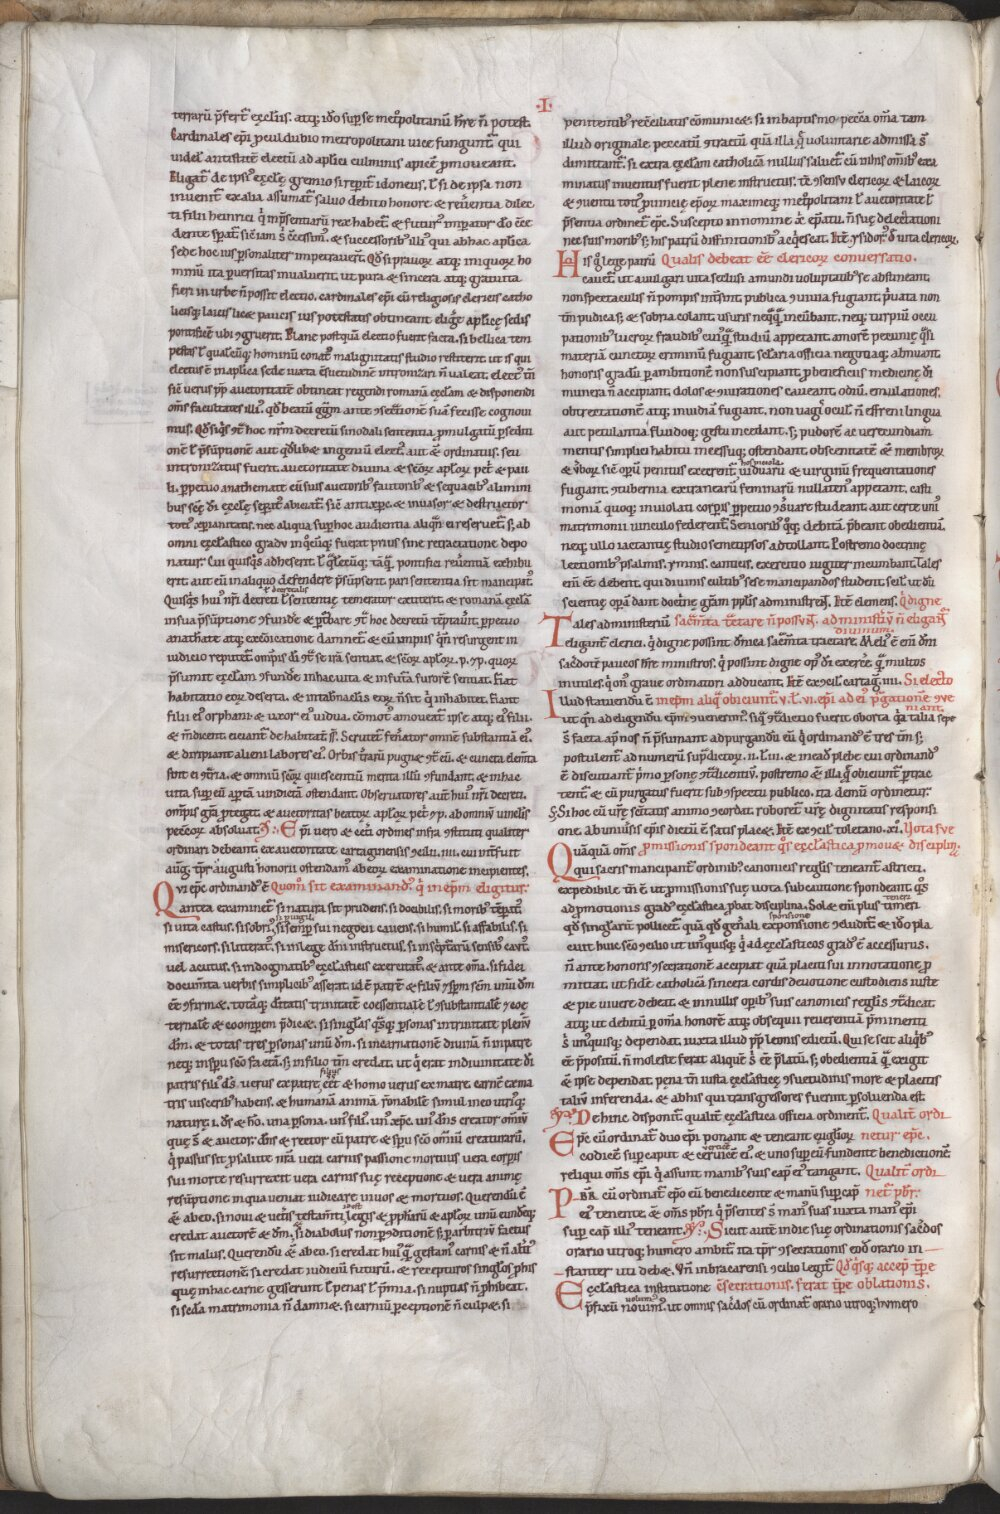 ·I·
terrarū p̄fert᷑ ęcl̄iis. atq; iđo sup̱ se met̓politanū h̄re n̄ potest.
Cardinales ep̄i p̱culdubio metropolitani uice fungunt᷑. qui
uidel᷑ antistitē electū ad ap̄lici culminis apicē p̱moueant.
Eligat᷑ đe ipsi᷒ ęccl̄ę gremio si rep̱it᷑ idoneus. ł si de ipsa non
inuenit᷑ ex alia assumat᷑ saluo debito honore & reuerentia dilec
ti filii heinrici q̓ inp̄sentiarū rex habet᷑. & futur᷒ imp̱ator đo cc̄e
dente sperat᷑. sic̄ iam s̄ cc̄essim᷒. & successorib᷒ illi᷒ qui ab hac ap̄lica
sede hoc ius p̱sonaliter impetrauer̄t. Qđ si prauor̄ atq; iniquor̄ ho
minū ita p̱uersitas inualuerit. ut pura & sincera atq; gratuita
fieri in urbe n̄ possit electio. cardinales ep̄i cū religiosis clericis catho
licisq; laicis licet paucis ius potestatis obtineant eligēdi ap̄licę sedis
pontificē ubi ɔgruerit. Plane postquā electio fuerit facta. si bellica tem
pestas ł qualcūq; hominū conat᷒ malignitatis studio restiterit. ut is qui
elect᷒ ē in ap̄lica sede iuxta ɔsuetudinē intronizari n̄ ualeat. elect᷒ tn̄
sic̄ uerus pp̄ auctoritatē obtineat regendi romanā ęcl̄am & disponendi
om̄s facultates illi᷒. qđ beatū gg̓m ante ɔsecrationē suā fecisse cognoui
mus. Qđ si q̓s ɔt᷑ hoc nr̄m decretū sinodali sententia p̱mulgatū p̱ seditio
onē ł p̄sūptionē aut qđlibet ingeniū elect᷒. aut & ordinatus. seu
intronizatus fuerit. auctoritate diuina & sc̄or̄ apl̄or̄ pet᷑ & pau
li. p̱petuo anathemate cū suis auctorib᷒ fautorib᷒ & sequacib᷒ a limini
bus sc̄ę dī ęccl̄ę sep̱at᷒ abiciat᷑. sic̄ antixp̄c & inuasor & destructor
toti᷒ xp̄ianitatis. nec aliqua sup̱ hoc audientia aliq̄n ei reseruet᷑. s; ab
omni ęccl̄iastico gradu in q̓cūq; fuerat prius sine retractatione depo
natur. Cui quisq̓s adheserit ł q̓lēcūq; tāq̓ pontifici reuerentiā exhibu
erit. aut eū in aliquo defendere p̄sūpserit. pari sententia sit mancipat᷒.
Quisq̓s hui᷒ nr̄i decreti ł sententię temerator extiterit. & romanā ęccl̄ā
decretalis
in sua p̄sūptione ɔfundere & p̱turbare ɔt᷑ hoc decretū tēptauit. p̱petuo
anathemate atq; excōicatione damnet᷑. & cū impiis q̓ n̄ resurgent in
iudicio reputet᷑. om̄ptis dī ɔt᷑ se irā sentiat. & sc̄or̄ apl̄or̄ .p. ɔp. quor̄
p̄sumit ęcl̄am ɔfundere in hac uita & in futura furorē sentiat. Fiat
habitatio eor̄ deserta. & in tabnaclis eor̄ n̄ sit q̓ inhabitet. Fiant
filii ei᷒ orphani. & uxor ei᷒ uidua. Cōmot᷒ amoueat᷑ ipse atq; ei᷒ filii.
& mēdicent eiciant᷑ de habitat. ss. Scrutet᷑ fenerator omnē substantiā ei᷒.
& diripiant alieni labores ei᷒. Orbis t̓rarū pugnet ɔt᷑ eū. & cuncta elem̄ta
sint ei ɔt̓ria. & omniū sc̄or̄ quiescentiū merita illū ɔfundant. & in hac
uita sup̱ eū ap̱tā uindictā ostendant. Obseruatores aut᷑ hui᷒ nr̄i decreti.
om̄ptis gr̄a p̱tegat. & auctoritas beator̄ apl̄or̄ pet̓ ɔp. ab omniū uinclis
peccator̄ absoluat. Ep̄i uero & cet̓i ordines infra ɔstituti qualiter
ordinari debeant. ex auctoritate cartaginensis ɔcilii .iiii. cui int̓fuit
aug̓. t̓pr᷒ augusti honorii ostendam᷒ ab eor̄ examinatione incipientes.
Qvi ep̄c ordinand᷒ ē Quom̄ sit examinand᷒ q̓ in ep̄m eligitur.
antea examinet᷑ si natura sit prudens. si docibilis. si morib᷒ tēp̱at᷒
si uita castus. si sobri᷒. si semp̱ sui negocii cauens. si humil᷒. si affabilis. si
si peruigil.
misericors. si litterat᷒. si in lege dn̄i instructus. si in sc̓pt̓arū sensib᷒ caut᷒.
vel acutus. si in dogmatib᷒ ęccl̄iasticis exercitat᷒. & ante om̄a. si fidei
docum̄ta uerbis simplicib᷒ asserat. iđ ē patrē & filiū ɔsp̄m sc̄m unū dm̄
eē ɔfirmet. totāq; dītatis trinitatē coessentialē ł ɔsubstantialē ɔcoę
ternalē & coomp̄tem p̄dicet. si singlas q̓sq; p̱sonas in trinitate plenū
dm̄. & totas tres p̱sonas unū dm̄. si incarnationē diuinā n̄ in patre
neq; in sp̄u sc̄o factā. s; in filio tm̄ credat. ut q̓ erat in diuinitate dī
patris fili᷒ ds̄. uerus ex patre. eēt & homo uerus ex matre. carnē ex ma
filius
tris uiscerib᷒ habens. & humanā animā r̄onabilē simul in eo utri᷒q;
naturę. i. ds̄ & ho. una p̱sona. un᷒ fili᷒. un᷒ xp̄c. un᷒ dn̄s creator omniū
quę s̄t & auctor. dn̄s & rector cū patre & sp̄u sc̄o omniū creaturarū.
q̓ passus sit p̱ salute nr̄a uera carnis passione mortuus uera corp̱is
sui morte resurrexit uera carnis suę receptione & uera animę
resūptione in qua ueniat iudicare uiuos & mortuos. Querendū ē
& ab eo. si noui & uet̓is testam̄ti. legis & ꝓph̄arū & apl̄or̄ unū eundēq;
id est
credat auctorē & dm̄. si diabolus non p̱ ɔditionē s; p̱ arbitriū factus
sit malus. Querendū & ab eo. si credat hui᷒ q̓ gestam᷒ carnis & n̄ alt̓i᷒
resurrectionē. si credat iudiciū futurū. & recepturos singlos p̱ his
quę in hac carne gesserunt ł penas ł p̄mia. si nuptias n̄ p̱hibeat.
si secda matrimonia n̄ damnet. si carniū p̱ceptionē n̄ culpet. si
penitentib᷒ recc̄iliatis cōmunicet. si in baptismo peccata om̄a tam
illud originale peccatū ɔtractū quā illa q̓ uoluntarie admissa s̄t
dimittant᷑. si extra ęcl̄am catholicā nullus saluet᷑. cū in his omīb᷒ exa
minatus inuentus fuerit plene instructus. t̄c ɔsensu clericor̄ & laicor̄
& ɔuentu toti᷒ p̱uincię ep̄or̄ maximeq; met̓politani ł auctoritate ł
p̄sentia ordinet᷑ ep̄c. Suscepto in nomine xp̄i ep̄atu. n̄ suę delectationi
nec suis morib᷒. s; his patrū diffinitionib᷒ acq̓escat. Itē ysidor᷒ đ uita clericor̄.
His q̓ lege patrū Qualis debeat eē clericor̄ conuersatio.
cauet᷑. ut a uulgari uita seclusi a mundi uoluptatib᷒ se abstineant.
non spectaculis n̄ pompis int̓sint. publica ɔuiuia fugiant. p̓uata non
tm̄ pudica s; & sobria colant. usuris neq̓q̓ incūbant. neq; turpiū occu
pationib᷒ lucror̄ fraudib᷒ cui᷒q̓ studiū appetant. amorē pecunię q̓si
materiā cunctor̄ criminū fugiant. sclaria officia negotiaq; abiciant.
honoris gradū p̱ ambitionē non suscipiant. p̱ beneficiis medicinę dī
munera n̄ accipiant. dolos & ɔiurationes caueant. odiū. emulationes.
obtrectationē atq; inuidiā fugiant. non uagi᷒ ocul᷒. n̄ effreni lingua
aut petulanti fluidoq; gestu incedant. s; pudorē ac uerecundiam
mentis simplici habitu incessuq; ostendant. obscenitatē & membror̄
& v̓bor̄ sic̄ op̱ū penitus execrent᷑. viduarū & virginū frequentationes
fugiant. ɔtubernia extranearū feminarū nullaten᷒ appetant. casti
moniā quoq; inuiolati corp̱is p̱petuo ɔseruare studeant. aut certe uni᷒
matrimonii uinculo federent᷑. Seniorib᷒ q̓q; debitā p̄beant obedientiā.
neq; ullo iactantię studio semetipsos adtollant. Postremo doctrinę
lectionib᷒ psalmis. ymnis. canticis. exercitio iugiter incumbant. Tales
eni᷑ eē debent. qui diuinis cultib᷒ sese mancipandos student. scil᷑ ut dū
scientię op̱ā dant doct̓nę gr̄am pp̄lis administrent. Itē clemens. Q̓ digne
Tales ad ministeriū sac̄m̄ta t̓ctare n̄ possūt. ad ministriū n̄ eligant᷑
eligant᷑ clerici. q̓ digne possint dn̄ica sac̄m̄ta tractare. Meli᷒ ē eni᷑ dn̄i diuinum.
sac̄dotē paucos h̄re ministros. q̓ possint digne op᷒ dī exerc̄e. q̓ multos
inutiles. q̓ on᷒ graue ordinatori adducant. Itē ex ɔcil᷑ cartag̓. iiii. Si electo
Illud statuendū ē in ep̄m aliq̓ obiciunt᷑. v. ł .vi. ep̄i ad ei᷒ p̱gationē ɔue
niant.
ut q̄n ad eligendū ep̄m ɔuenerint. si q̓ ɔt̓dictio fuerit oborta. q̓ talia sepe
s̄t facta ap̱ nos. n̄ p̄sumant ad purgandū eū q̓ ordinand᷒ ē tres tm̄. s;
postulent᷑ ad numerū sup̓dictor̄ .ii. ł .iii. & in eadē plebe cui ordinand᷒
ē discutiant᷑ p̓mo p̱sonę ɔt̓dicentiū. postremo & illa q̓ obiciunt᷑ p̱trac
tent᷑. & cū purgatus fuerit sub ɔspectu publico. ita demū ordinetur.
Si hoc cū ur̄ę sc̄itatis animo ɔcordat. roboret᷑ ur̄ę dignitatis responsi
one. ab uniu̓sis ep̄is dictū ē satis placet. Itē ex ɔcil᷑ toletano .xi. Uota suę
Quāquā om̄s p̱missionis spondeant q̓s ęccl̄astica p̱mouet disciplin.
Qui sacris mancipant᷑ ordinib᷒. canonicis regl̄is teneant᷑ astricti.
expedibile tm̄ ē ut p̱missionis suę uota sub cautione spondeant. q̓s
ad promotionis grad᷒ ęccl̄astica p̱bat disciplina. Solet eni᷑ plus timeri
teneri
qđ singlarit᷑ pollicet᷑ quā qđ gn̄ali exponsione ɔcludit᷑. & iđo pla
sponsione
cuit huic sc̄o ɔcilio. ut un᷒quisq; q̓ ad ęccl̄asticos grad᷒ ē accessurus.
n̄ ante honoris ɔsecrationē accipiat quā placiti sui innotatione p̱
mittat. ut fidē catholicā sincera cordis deuotione custodiens iuste
& pie uiuere debeat. & in nullis op̱ib᷒ suis canonicis regl̄is ɔt̓dicat.
atq; ut debitū p̱ om̄a honorē atq; obsequii reuerentiā p̄minenti
s̄ un᷒quisq; dependat. iuxta illud pp̄ leonis edictū. Qui se scit aliq̓b᷒
eē p̄positū. n̄ moleste ferat aliquē s̄ eē p̄latū. s; obedientiā q̓ exigit
& ipse dependat. pena tm̄ iusta ęccl̄asticę ɔsuetudinis more & placitis
taliū inferenda. & ab his qui transgressores fuerint p̱soluenda est.
De hinc disponit᷑ qualit᷑ ęccl̄astica officia ordinent᷑. Qualit᷑ ordi
Ep̄c cū ordinat᷑ duo ep̄i ponant & teneant eugl̄ior̄ netur ep̄c.
codicē sup̱ caput & ceruicē ei᷒. & uno sup̱ eū fundente benedictionē
reliqui om̄s ep̄i q̓ assunt manib᷒ suis cap᷑ ei᷒ tangant. Qualit᷑ ordi
Pbr̄ cū ordinat᷑ ep̄o eū benedicente & manū sup̱ cap᷑ net᷑ pbr̄.
ei᷒ tenente. & om̄s pbr̄i q̓ p̄sentes s̄t man᷒ suas iuxta man᷒ ep̄i
sup̱ cap᷑ illi᷒ teneant. Sicut autē in die suę ordinationis sac̄dos
orario utroq; humero ambit᷑. ita t̓pr̄ ɔsecrationis eiđ orario in
stanter uti debet. Vn̄ in bracarensi ɔcilio legit᷑ Qđ q̓sq; accep̱ t̓pe
Ecclastica institutione ɔsecrationis. ferat t̓pe oblationis.
p̄fixū nouim᷒. ut omnis sac̄dos cū ordinat᷑ orario utroq; humero